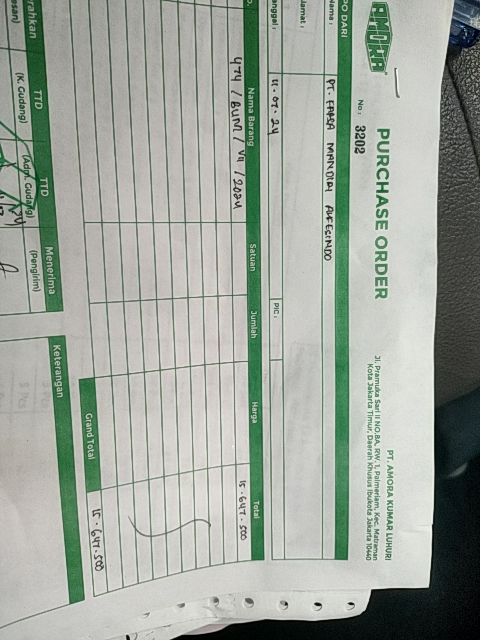 AMORA
PURCHASE ORDER
No : 3202
PT. AMORA KUMAR LUHURI
Jl. Pramuka Sari II NO.8A, RW. 1, Palmeriam, Kec. Matraman
Kota Jakarta Timur, Daerah Khusus Ibukota Jakarta 10440
PO DARI
Nama : PT. FARSA MANDIRI ALFESINDO
lamat :
anggal : 11 . 07 . 24
PIC :
Nama Barang Satuan Jumlah Harga Total
474 / BUM / VII / 2024 15 . 647 . 500
Grand Total 15 . 647 . 500
erahkan TTD TTD Menerima
esan) (K. Gudang) (Adm. Gudang) (Pengirim)
Keterangan